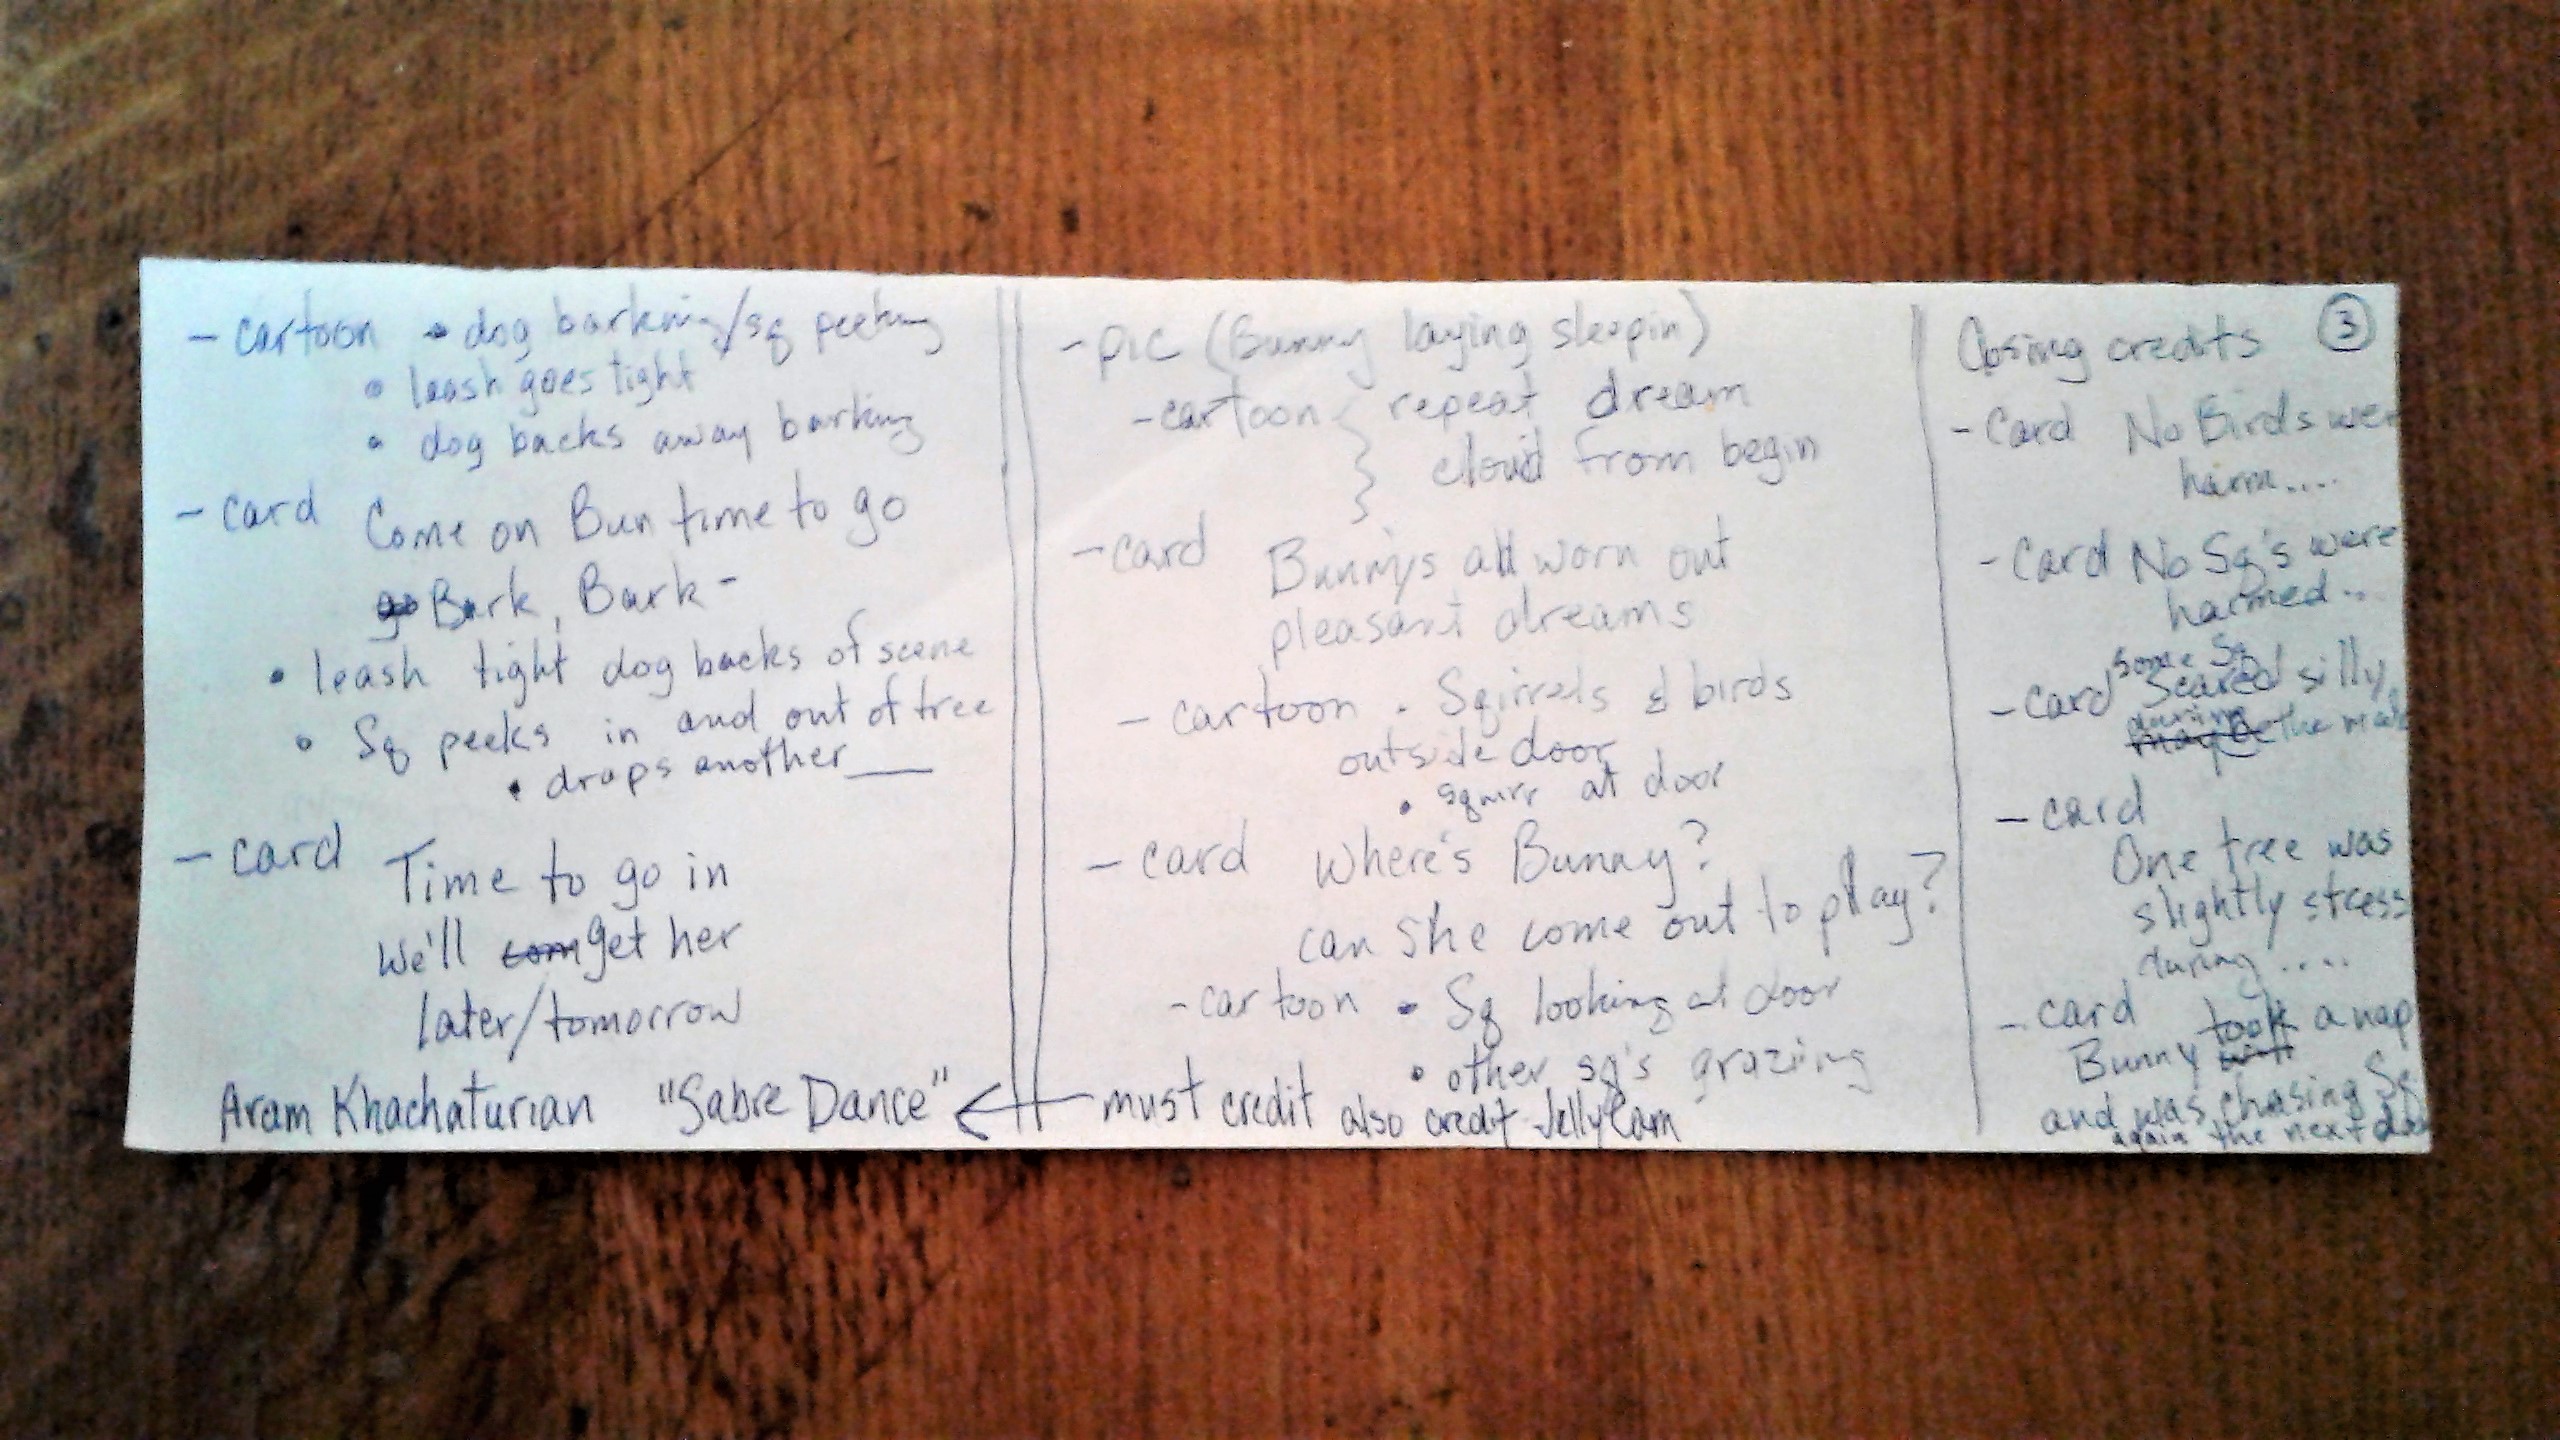 - cartoon • dog barking/sq peeking
• leash goes tight
• dog backs away barking
- card Come on Bun time to go
go Bark, Bark -
• leash tight dog backs of scene
• Sq peeks in and out of tree
• drops another___
- card Time to go in
We'll com get her
later/tomorrow
Aram Khachaturian "Sabre Dance"
- pic (Bunny laying sleepin)
- cartoon } repeat dream
cloud from begin
- card Bunnys all worn out
pleasant dreams
- cartoon . Sqirrels & birds
outside door
• squirr at door
- card Where's Bunny?
can she come out to play?
- cartoon • Sq looking at door
• other sq's grazing
must credit also credit Jellycam
Closing credits 3
- Card No Birds wer
harm....
- Card No Sq's were
harmed...
some Sq
- card Scared silly,
during
maybe the
- card
One tree was
slightly stress
during ....
- card took a nap
Bunny
and was chasing Sq
again the next day